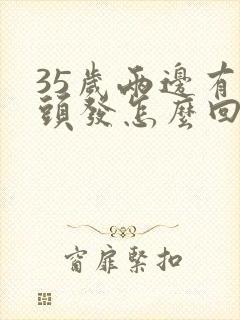 35歲兩邊有
頭發怎麼回
窗扉緊扣